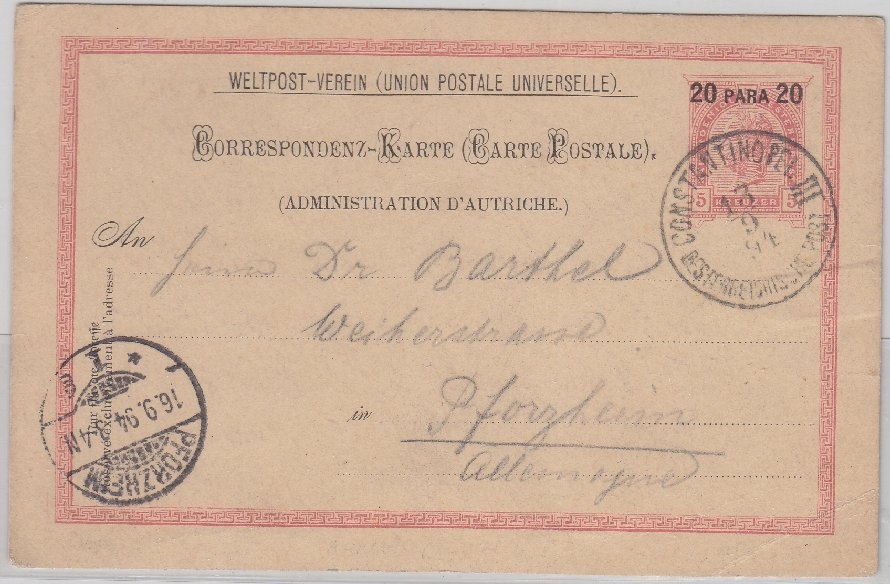 WELTPOST-VEREIN (UNION POSTALE UNIVERSELLE).
20 PARA 20
CORRESPONDENZ-KARTE (CARTE POSTALE).
(ADMINISTRATION D'AUTRICHE.)
5 KREUZER 5
CONSTANTINOPEL III
13
9
94
OESTERREICHISCHE POST
An
Herrn Dr Barthel
Weiherstrasse
in Pforzheim
Allemagne
Nur für die Adresse
Réservé exclusivement à l'adresse
16.9.94
PFORZHEIM